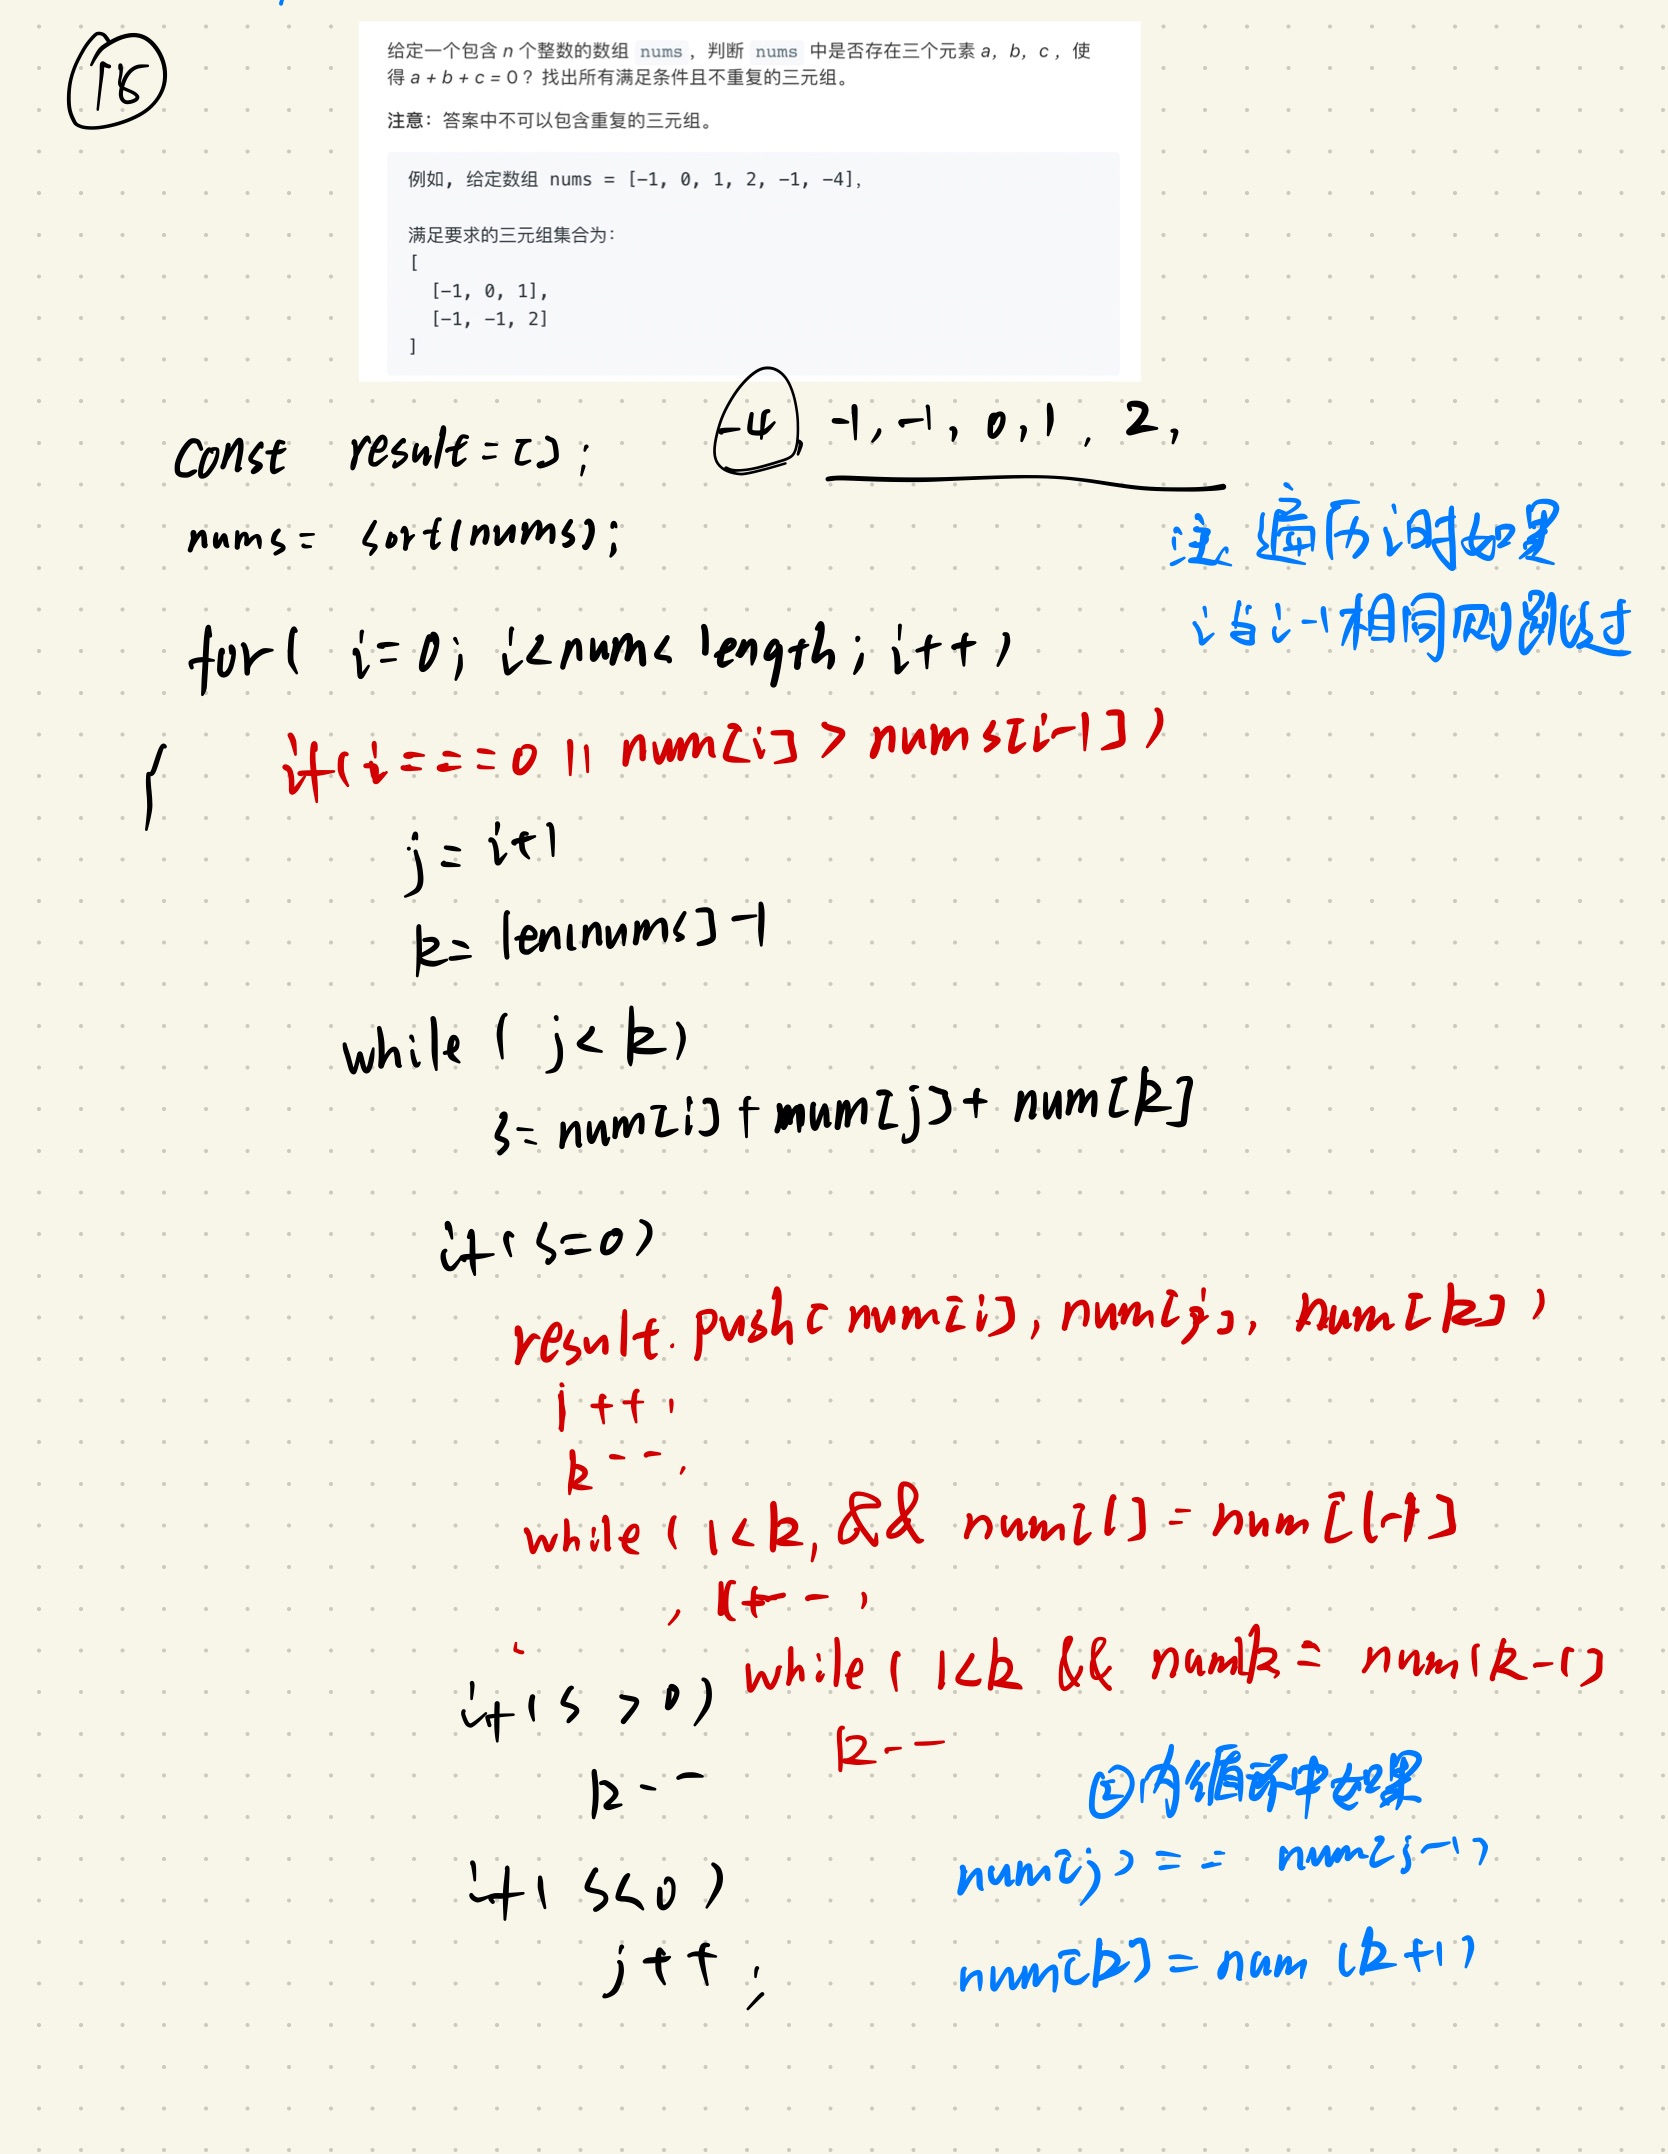 15
给定一个包含 n 个整数的数组 nums，判断 nums 中是否存在三个元素 a，b，c，使
得 a + b + c = 0？找出所有满足条件且不重复的三元组。
注意：答案中不可以包含重复的三元组。
例如, 给定数组 nums = [-1, 0, 1, 2, -1, -4]，
满足要求的三元组集合为：
[
[-1, 0, 1],
[-1, -1, 2]
]
-4, -1, -1, 0, 1, 2,
const result = [];
nums = sort(nums);
注 遍历i时如果
i与i-1相同则跳过
for( i=0; i<nums length; i++)
{ if(i===0 || num[i] > nums[i-1])
j = i+1
k = len(nums] -1
while ( j < k)
s= num[i] + num[j] + num[k]
if( s=0)
result.push( num[i], num[j], num[k])
j ++;
k --;
while ( l<k, && num[l] = num[l-1]
while ( l<k && num[k = num(k-1]
k--
if( s > 0)
k--
②内循环中如果
num[j] == num[j-1]
num[k] = num (k+1)
if( s<0)
j++;